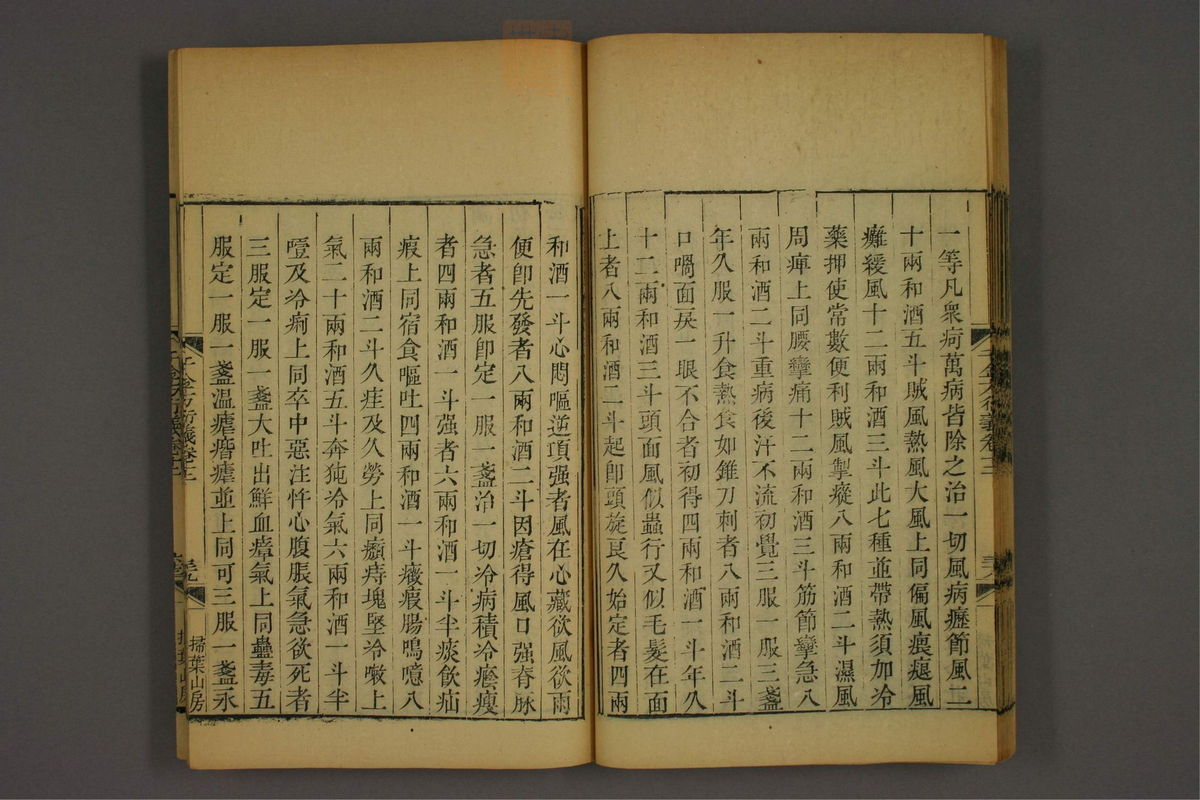 一等凡衆疴萬病皆除之治一切風病歷節風二
十兩和酒五斗賊風熱風大風上同偏風㾯㿗風
癱緩風十二兩和酒三斗此七種並帶熱須加冷
藥押使常數便利賊風掣瘲八兩和酒二斗濕風
周痺上同腰攣痛十二兩和酒三斗筋節攣急八
兩和酒二斗重病後汗不流初覺三服一服三盞
年久服一升食熱食如錐刀刺者八兩和酒二斗
口喎面戾一眼不合者初得四兩和酒一斗年久
十二兩和酒三斗頭面風似蟲行又似毛髮在面
上者八兩和酒二斗起卽頭旋良久始定者四兩
和酒一斗心悶嘔逆項强者風在心藏欲風欲雨
便卽先發者八兩和酒二斗因瘡得風口强脊脉
急者五服卽定一服一盞治一切冷病積冷癊瘦
者四兩和酒一斗强者六兩和酒一斗半痰飲疝
瘕上同宿食嘔吐四兩和酒一斗癥瘕腸鳴噫八
兩和酒二斗久疰及久勞上同癲痔塊堅冷嗽上
氣二十兩和酒五斗奔㹠冷氣六兩和酒一斗半
噎及冷痢上同卒中惡注忤心腹脹氣急欲死者
三服定一服一盞大吐出鮮血瘴氣上同蠱毒五
服定一服一盞溫瘧痎瘧並上同可三服一盞永
千金方衍義卷十二
掃葉山房